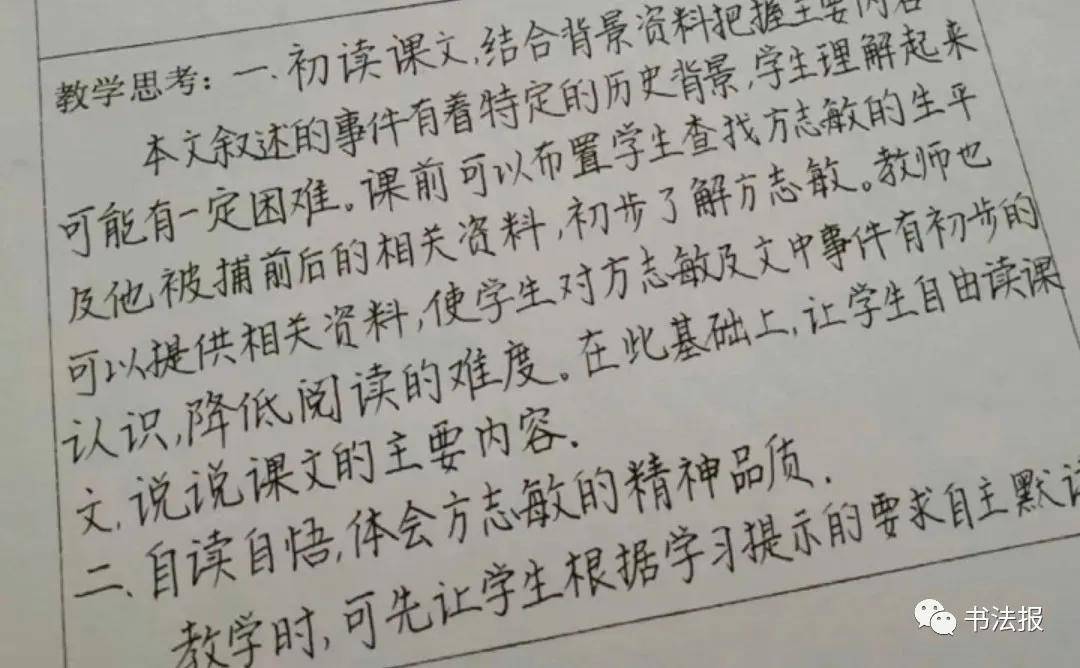 教学思考：一.初读课文,结合背景资料把握主要内容
本文叙述的事件有着特定的历史背景,学生理解起来
可能有一定困难。课前可以布置学生查找方志敏的生平
及他被捕前后的相关资料,初步了解方志敏。教师也
可以提供相关资料,使学生对方志敏及文中事件有初步的
认识,降低阅读的难度。在此基础上,让学生自由读课
文,说说课文的主要内容.
二、自读自悟,体会方志敏的精神品质.
教学时,可先让学生根据学习提示的要求自主默读
书法报